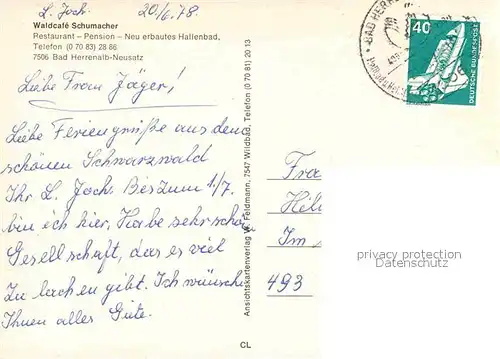 L. Joch. 20/6.78.
Waldcafé Schumacher
Restaurant – Pension – Neu erbautes Hallenbad,
Telefon (0 70 83) 28 86
7506 Bad Herrenalb-Neusatz
Liebe Frau Jäger!
Liebe Feriengrüße aus dem
schönen Schwarzwald
Ihr L. Joch. Bis zum 1/7.
bin ich hier. Habe sehr schön
Gesellschaft, das es viel
zu lachen gibt. Ich wünsche
Ihnen alles Gute.
Ansichtskartenverlag W. Feldmann, 7547 Wildbad, Telefon (0 70 81) 20 13
CL
BAD HERR
40
DEUTSCHE BUNDESPOST
Fra
Hil
Im
493
privacy protection
Datenschutz